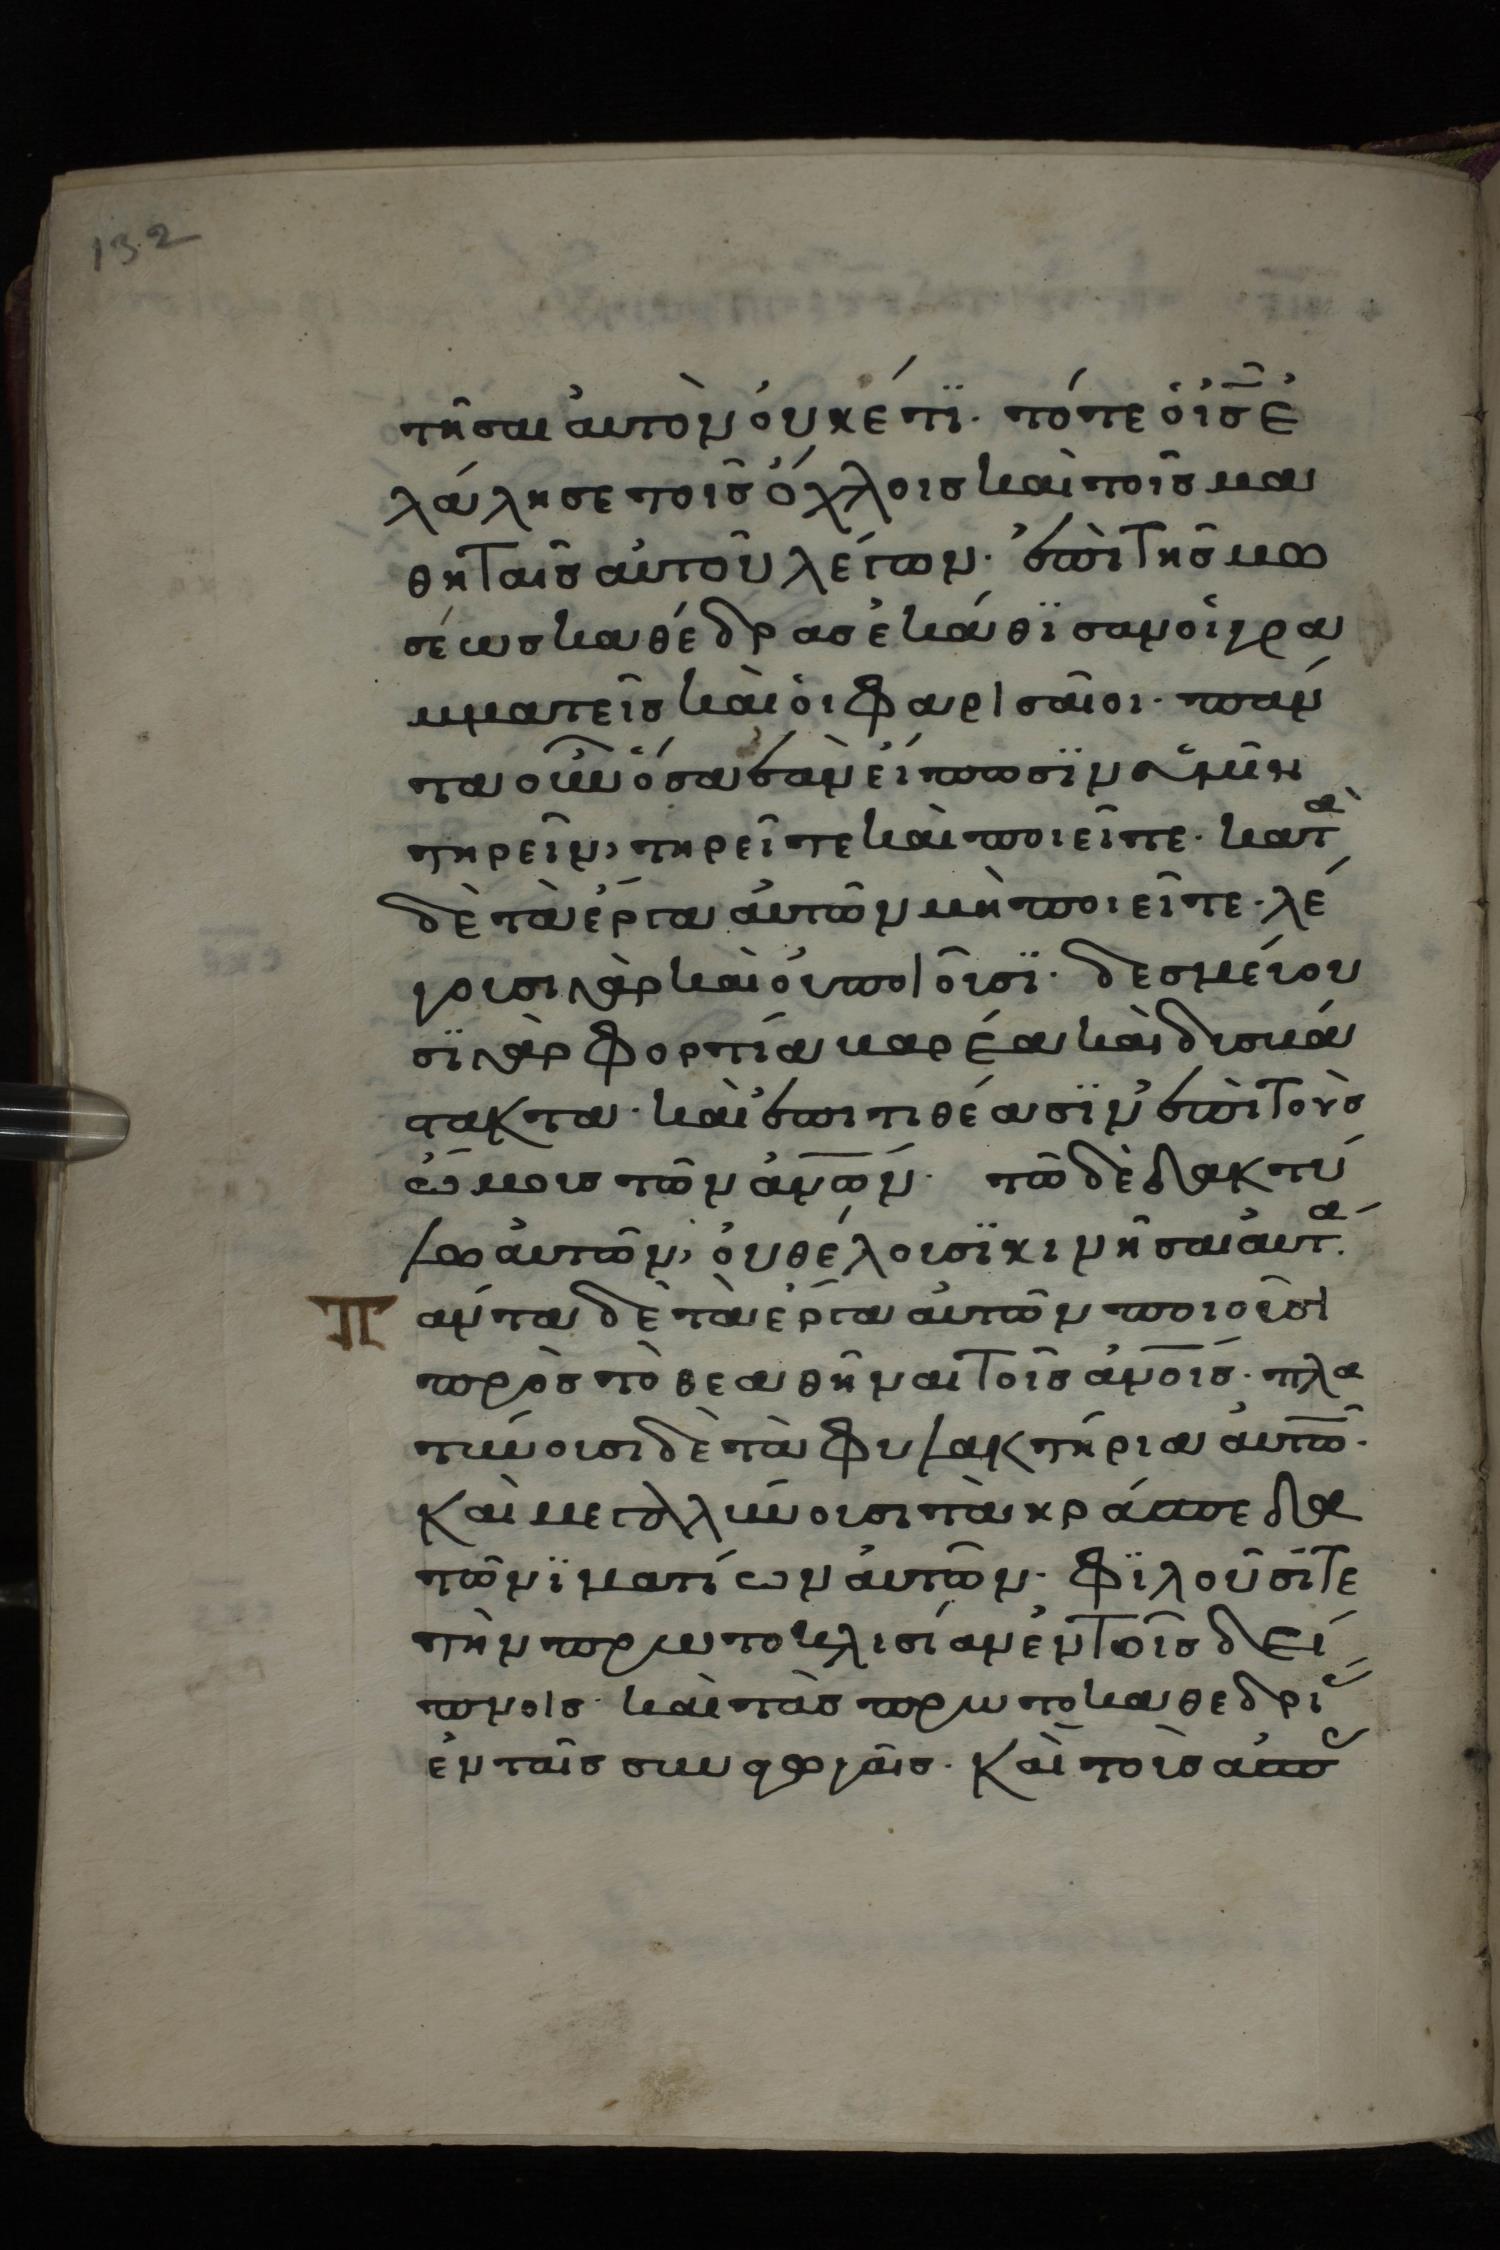 132
τῆσαι ἀυτὸν ὀυκέτϊ. τότε ὁ ἰς̅ ἐ
λάλησε τοῖς ὄχλοις καὶ τοῖς μα
θηταῖς αὐτοῦ λέγων. ἐπὶ τῆς μω
σέως καθέδρας ἐκάθϊσαν οἱ γρα
μματεῖς καὶ ὁι φαρισαῖοι. πάν
τα οὖν ὅσα ἐὰν εἴπωσϊν ὑμῖν
τηρεῖν, τηρεῖτε καὶ ποιεῖτε. κατὰ
δὲ τὰ ἔργα ἀυτῶν μὴ ποιεῖτε. λέ
γουσι γὰρ καὶ ὀυ ποιοῦσϊ. δεσμέυου
σϊ γὰρ φορτία βαρέα καὶ δυσβά
τακτα. καὶ ἐπιτιθέασϊν ἐπὶ τοὺς
ὤμους τῶν ἀν̅ω̅ν. τῶ δὲ δακτύ
λω ἀυτῶν, ὀυ θέλουσϊ κινῆσαι ἀυτά.
Πάντα δὲ τὰ ἔργα ἀυτῶν ποιοῦσι
πρὸς τὸ θεαθῆναι τοῖς ἀν̅ο̅ις. πλα
τύνουσι δὲ τὰ φυλακτήρια ἀυτῶ̅.
καὶ μεγαλύνουσι τὰ κράσπεδα
τῶν ϊματίων ἀυτῶν. φϊλοῦσί τε
τὴν πρωτοκλισίαν ἐν τοῖς δεί
πνοις. καὶ τὰς πρωτοκαθεδρί
ἐν ταῖς συναγωγαῖς. καὶ τοὺς ἀσπ